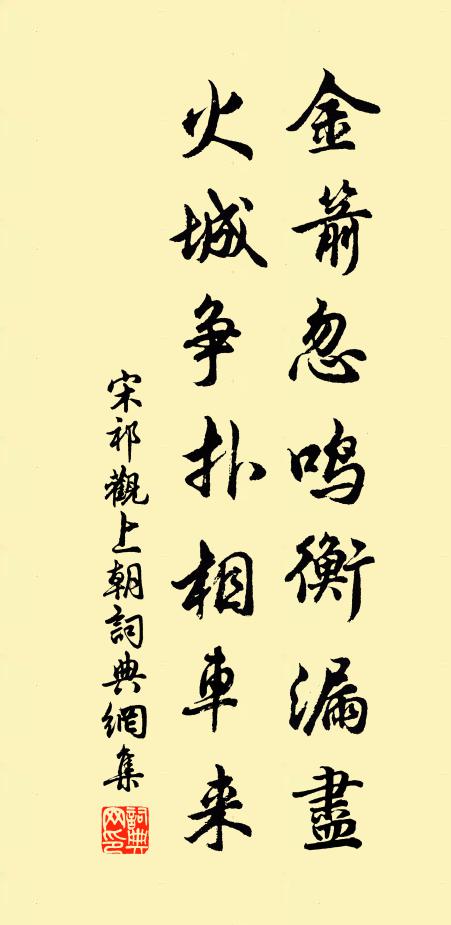 金箭忽鳴衡漏盡
火城争扑相車来
宋祁觀上朝詞典網集
詞典网印